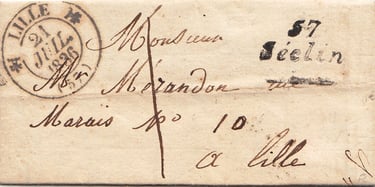 LILLE
21
JUIL.
1836
(57)
57
Séclin
Monsieur
Mr Mérandon rue
Marais No 10
a Lille